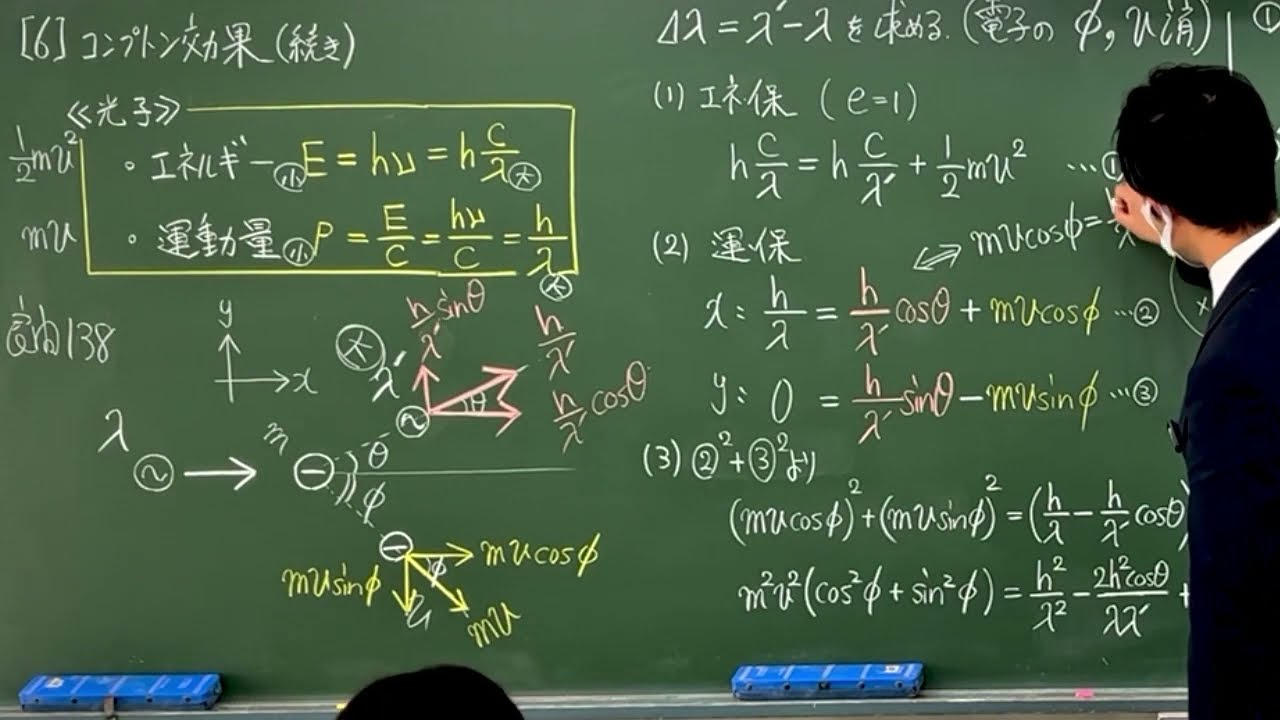 [6] コンプトン効果 (続き)
≪光子≫
½mv²
・エネルギー㊙小 E = hν = h c/λ 大
mv
・運動量 小 P = E/c = hν/c = h/λ 大
138
y
x
大
λ'
h/λ' sinθ
h/λ'
θ
h/λ' cosθ
λ
m
θ
φ
mv sinφ
mv cosφ
φ
v
mv
Δλ = λ' - λ を求める. (電子の φ, v 消)
①
(1) エネ保 (e=1)
h c/λ = h c/λ' + ½mv² …①
(2) 運保
⇔ mv cosφ =
x : h/λ = h/λ' cosθ + mv cosφ …②
y : 0 = h/λ' sinθ - mv sinφ …③
(3) ②² + ③² より
(mv cosφ)² + (mv sinφ)² = (h/λ - h/λ' cosθ)
m²v²(cos²φ + sin²φ) = h²/λ² - 2h²cosθ/λλ' +